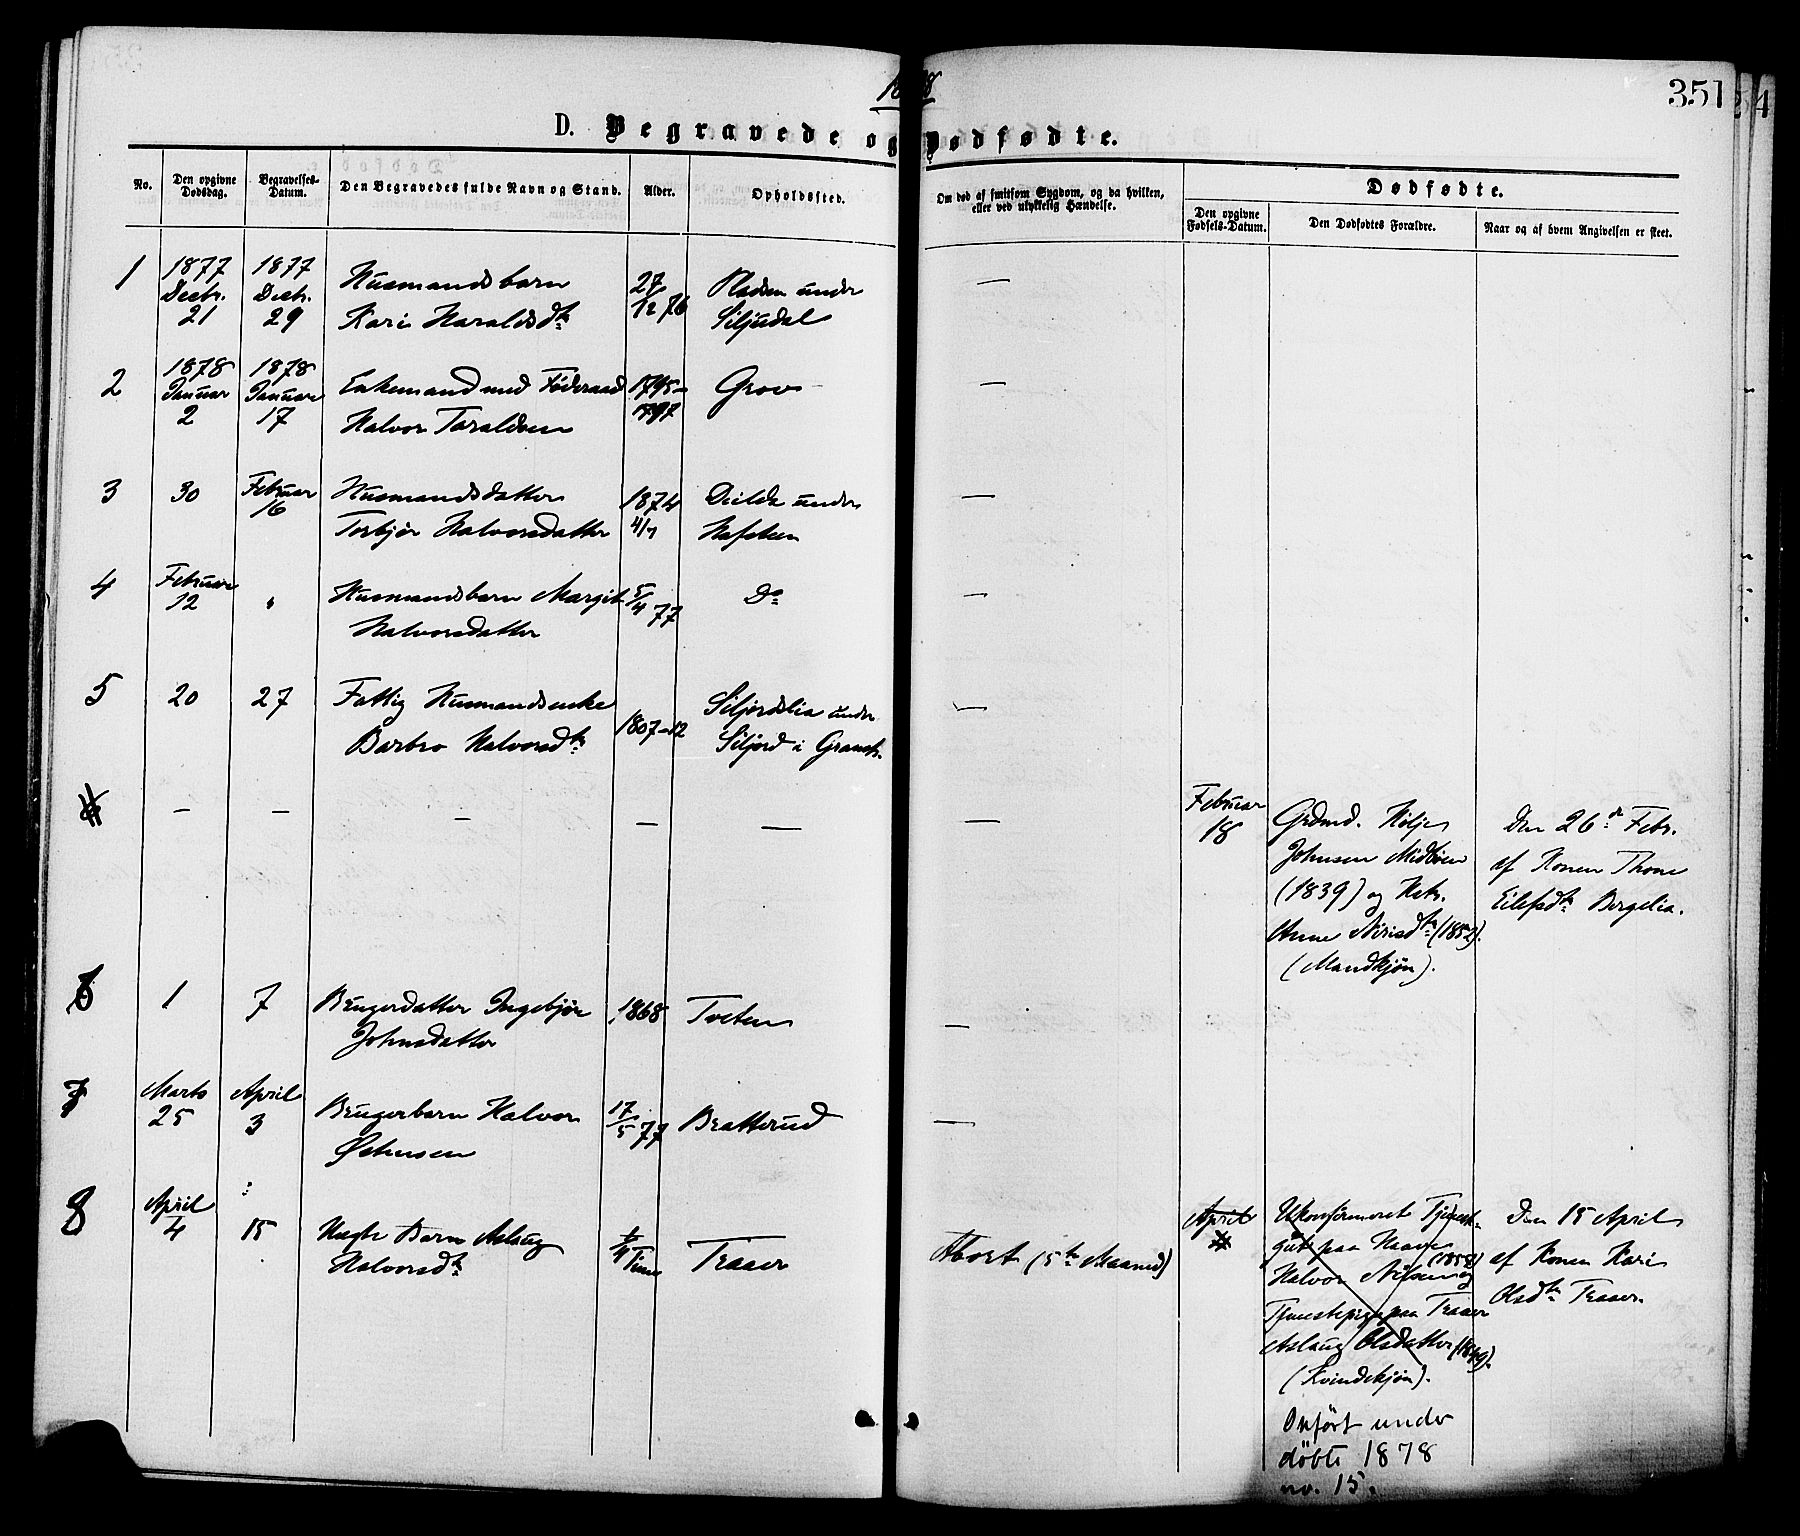 1878
351
D. Begravede og Dødfødte.
No.
Den opgivne Dødsdag.
Begravelses-Datum.
Den Begravedes fulde Navn og Stand.
Alder.
Opholdssted.
Om død af smitsom Sygdom, og da hvilken, eller ved ulykkelig Hændelse.
Dødfødte.
Den opgivne Fødsels-Datum.
Den Dødfødtes Forældre.
Naar og af hvem Angivelsen er skeet.
1 1877 Decbr. 21 1877 Decbr. 29 Husmandsbarn
Kari Haraldsdtr 27/12 76 Pladsen under
Siljudal —
2 1878 Januar 2 1878 Januar 17 Enkemand med Føderaad
Halvor Taraldsen 1795–1797 Grov —
3 30 Februar 16 Husmandsdatter
Torbjør Halvorsdatter 1874 4/7 under
—
4 Februar 12 " Husmandsbarn Margit
Halvorsdatter 5/4 77 Do —
5 20 27 Fattig Husmandsenke
Barbro Halvorsdtr 1807–12 Siljordslia under
Siljord i Gransh. —
— — — — — —
Februar 18
Grdmd. Kølje
Johnsen Midtbøen
(1839) og Kstr.
Anne Nirisdtr (1852).
(Mandkjøn).
Den 26de Febr.
af Konen Thone
Eilefsdtr Bergelia.
6 1 7 Brugerdatter Ingebjør
Johnsdatter 1868 Tveten —
7 Marts 25 April 3 Brugerbarn Halvor
Østensen 17/5 77 Bratterud —
8 April 4 15 Uægte Barn Aslaug
Halvorsdtr 1/4 Time Traaer
Abort (5te Maaned)
April
Ukonfirmeret Tjenest-
gut paa Haave
Halvor Nilsen og (1858)
Tjenestepige paa Traaer
Aslaug Olsdatter (1849).
(Kvindekjøn).
Den 15 April
af Konen Kari
Olsdtr Traaer.
Onført under
døbte 1878
no. 15.